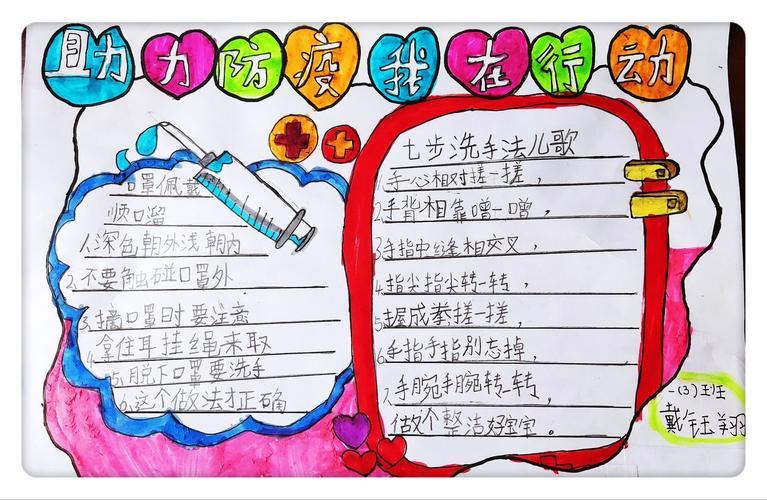 助力力防疫我在行动
口罩佩戴
顺口溜
1.深色朝外浅朝内
2.不要触碰口罩外
3.摘口罩时要注意
4.拿住耳挂绳来取
5.脱下口罩要洗手
6.这个做法才正确
七步洗手法儿歌
手心相对搓一搓，
2手背相靠噌一噌，
3手指中缝相交叉，
4.指尖指尖转一转，
5握成拳搓一搓，
6手指手指别忘掉，
7手腕手腕转一转，
做个整洁好宝宝。
一(3)班
戴钰翔